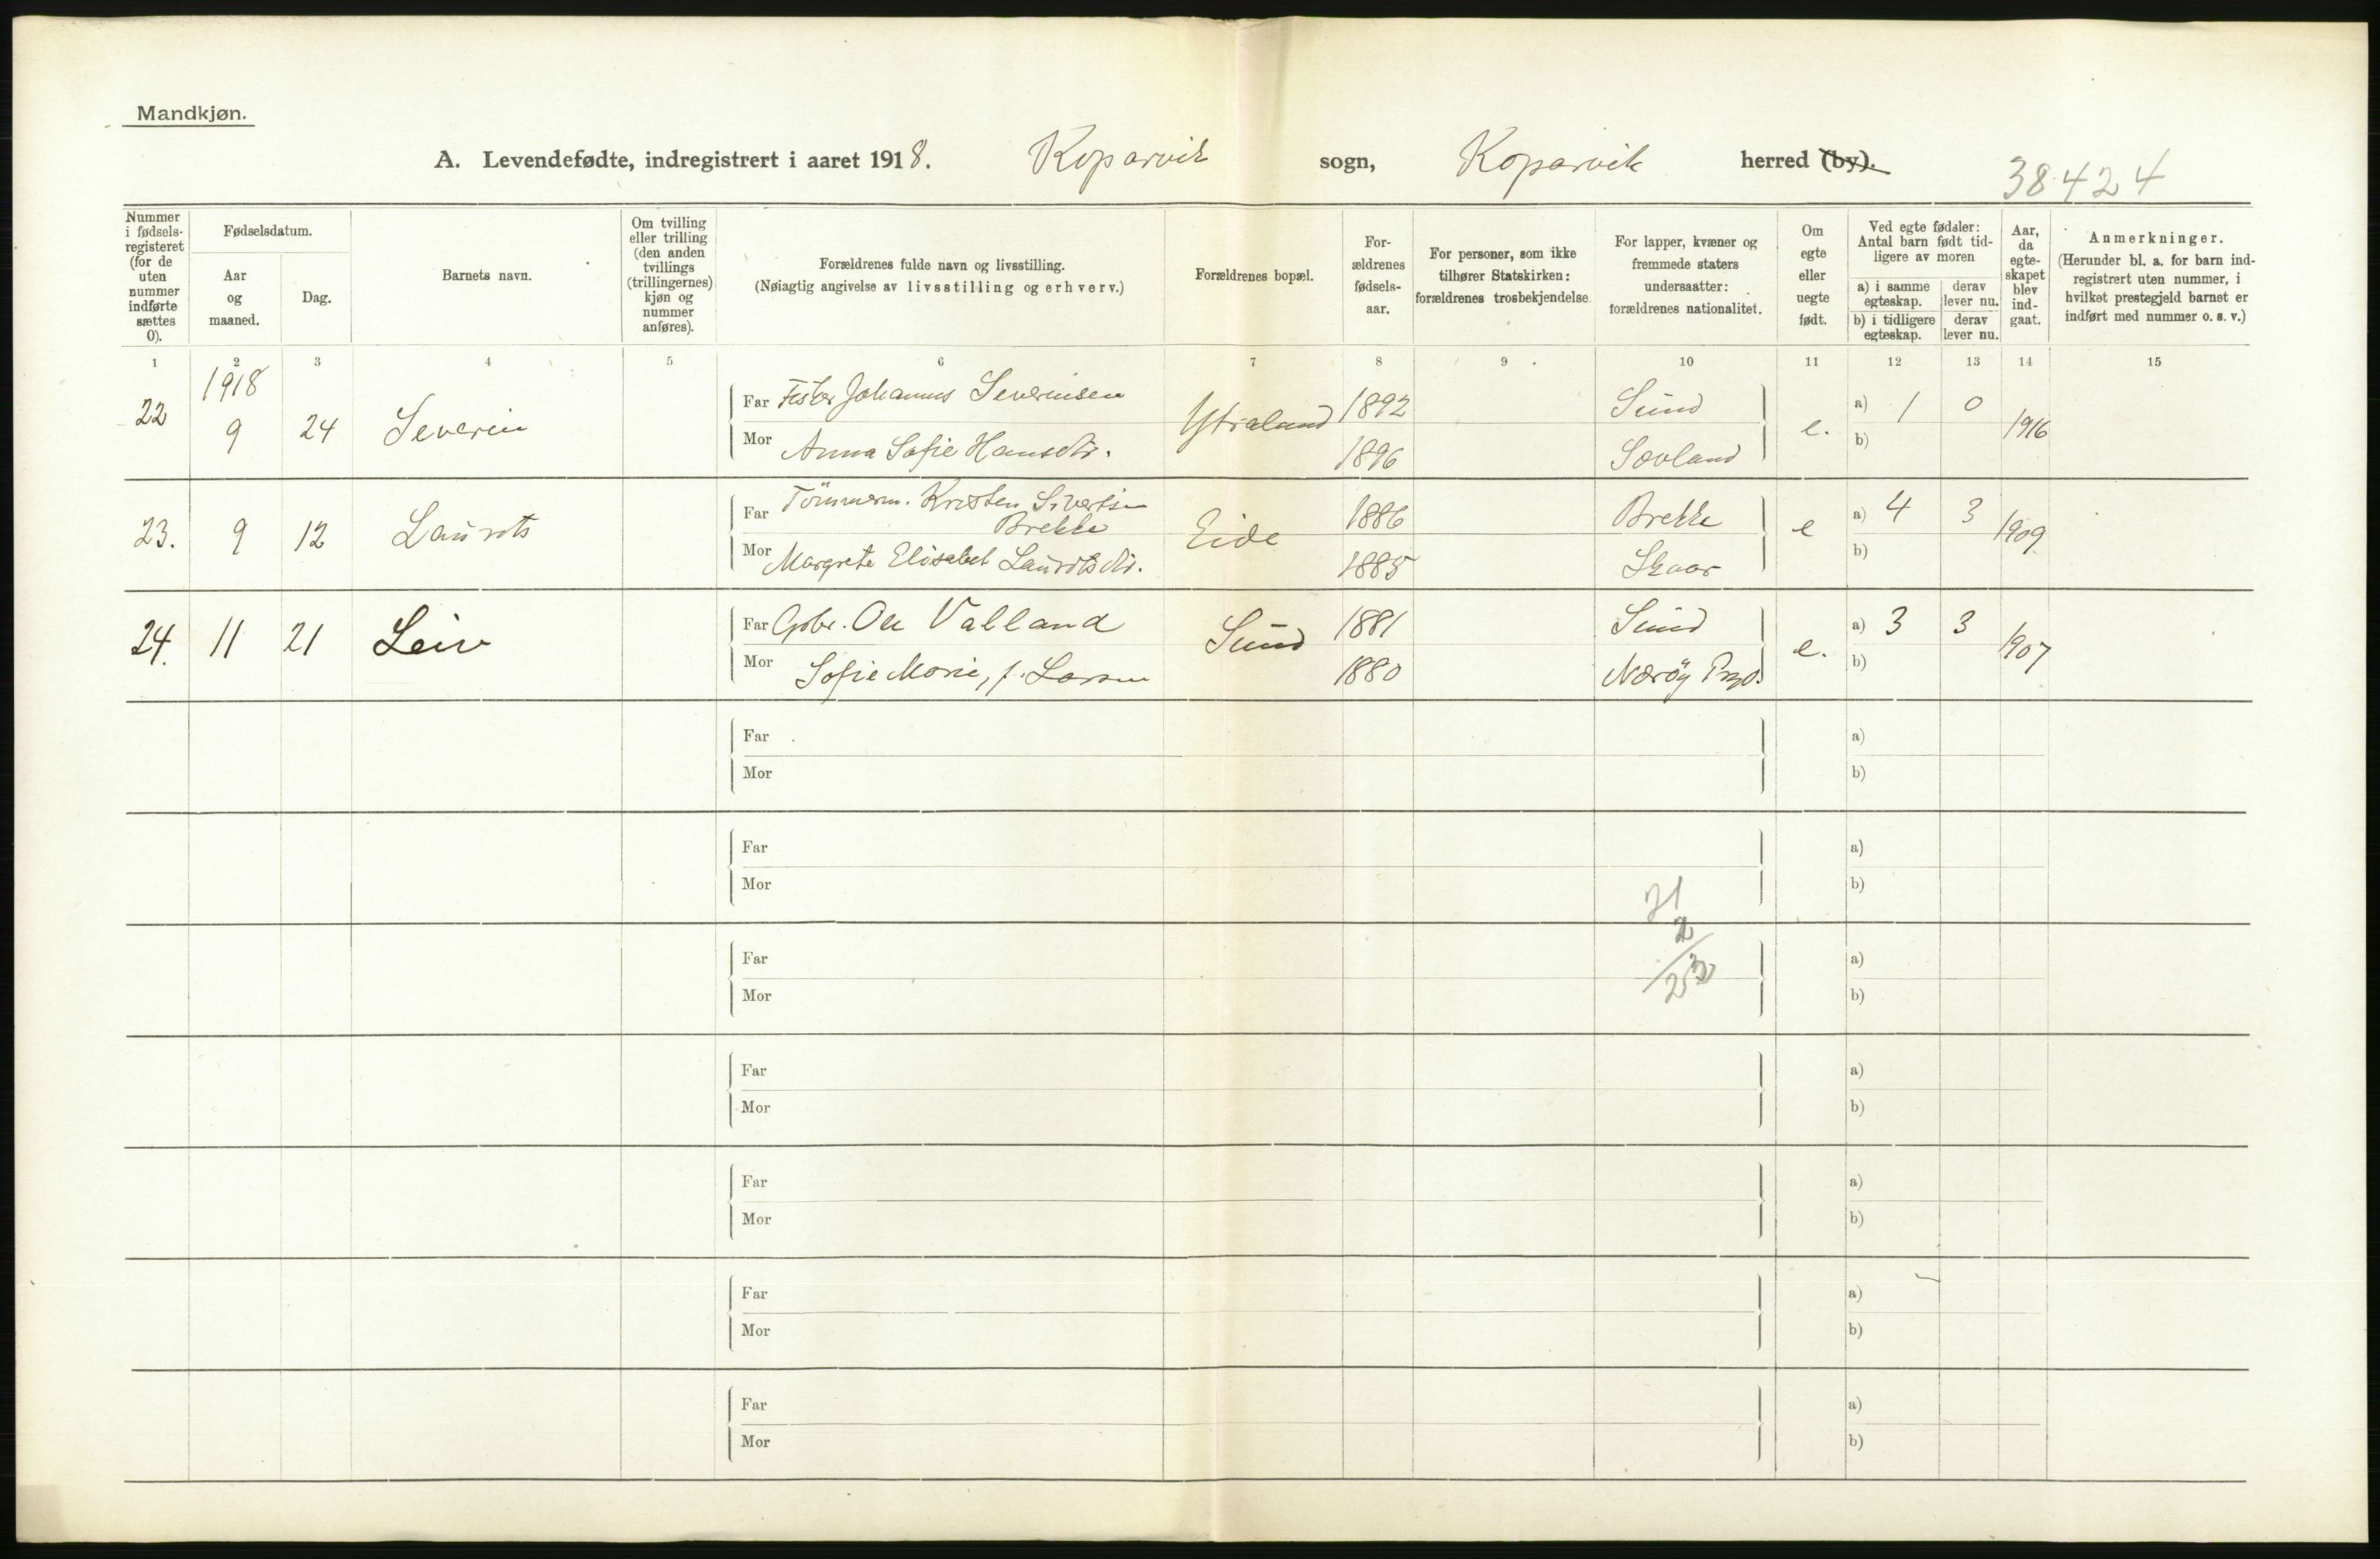 Mandkjøn.
A. Levendefødte, indregistrert i aaret 1918. Kopervik sogn, Kopervik herred (by).
38424
Nummer i fødselsregisteret (for de uten nummer indførte sættes 0).
Fødselsdatum.
Aar og maaned.
Dag.
Barnets navn.
Om tvilling eller trilling (den anden tvillings (trillingernes) kjøn og nummer anføres).
Forældrenes fulde navn og livsstilling.
(Nøiagtig angivelse av livsstilling og erhverv.)
Forældrenes bopæl.
Forældrenes fødselsaar.
For personer, som ikke tilhører Statskirken: forældrenes trosbekjendelse.
For lapper, kvæner og fremmede staters undersaatter: forældrenes nationalitet.
Om egte eller uegte født.
Ved egte fødsler: Antal barn født tidligere av moren
a) i samme egteskap.
derav lever nu.
b) i tidligere egteskap.
derav lever nu.
Aar, da egteskapet blev indgaat.
Anmerkninger.
(Herunder bl. a. for barn indregistrert uten nummer, i hvilket prestegjeld barnet er indført med nummer o. s. v.)
1 2 3 4 5 6 7 8 9 10 11 12 13 14 15
1918
22 9 24 Severin
Far Fisker Johannes Severinsen
Mor Anna Sofie Hansdtr.
Ytraland
1892 Sund
1896 Sævland
e. a) 1 0
b)
1916
23. 9 12 Laurits
Far Tömmerm. Kristen Sivertsen
Brekke
Mor Margrete Elisabet Lauritsdtr.
Eide
1886 Brekke
1885 Skaar
e a) 4 3
b)
1909
24. 11 21 Leiv
Far Gbr. Ole Valland
Mor Sofie Marie, f. Larsen
Sund
1881 Sund
1880 Nærøy Prgd.
e. a) 3 3
b)
1907
Far a)
Mor b)
Far a)
Mor b)
21
2
23
Far a)
Mor b)
Far a)
Mor b)
Far a)
Mor b)
Far a)
Mor b)
Far a)
Mor b)